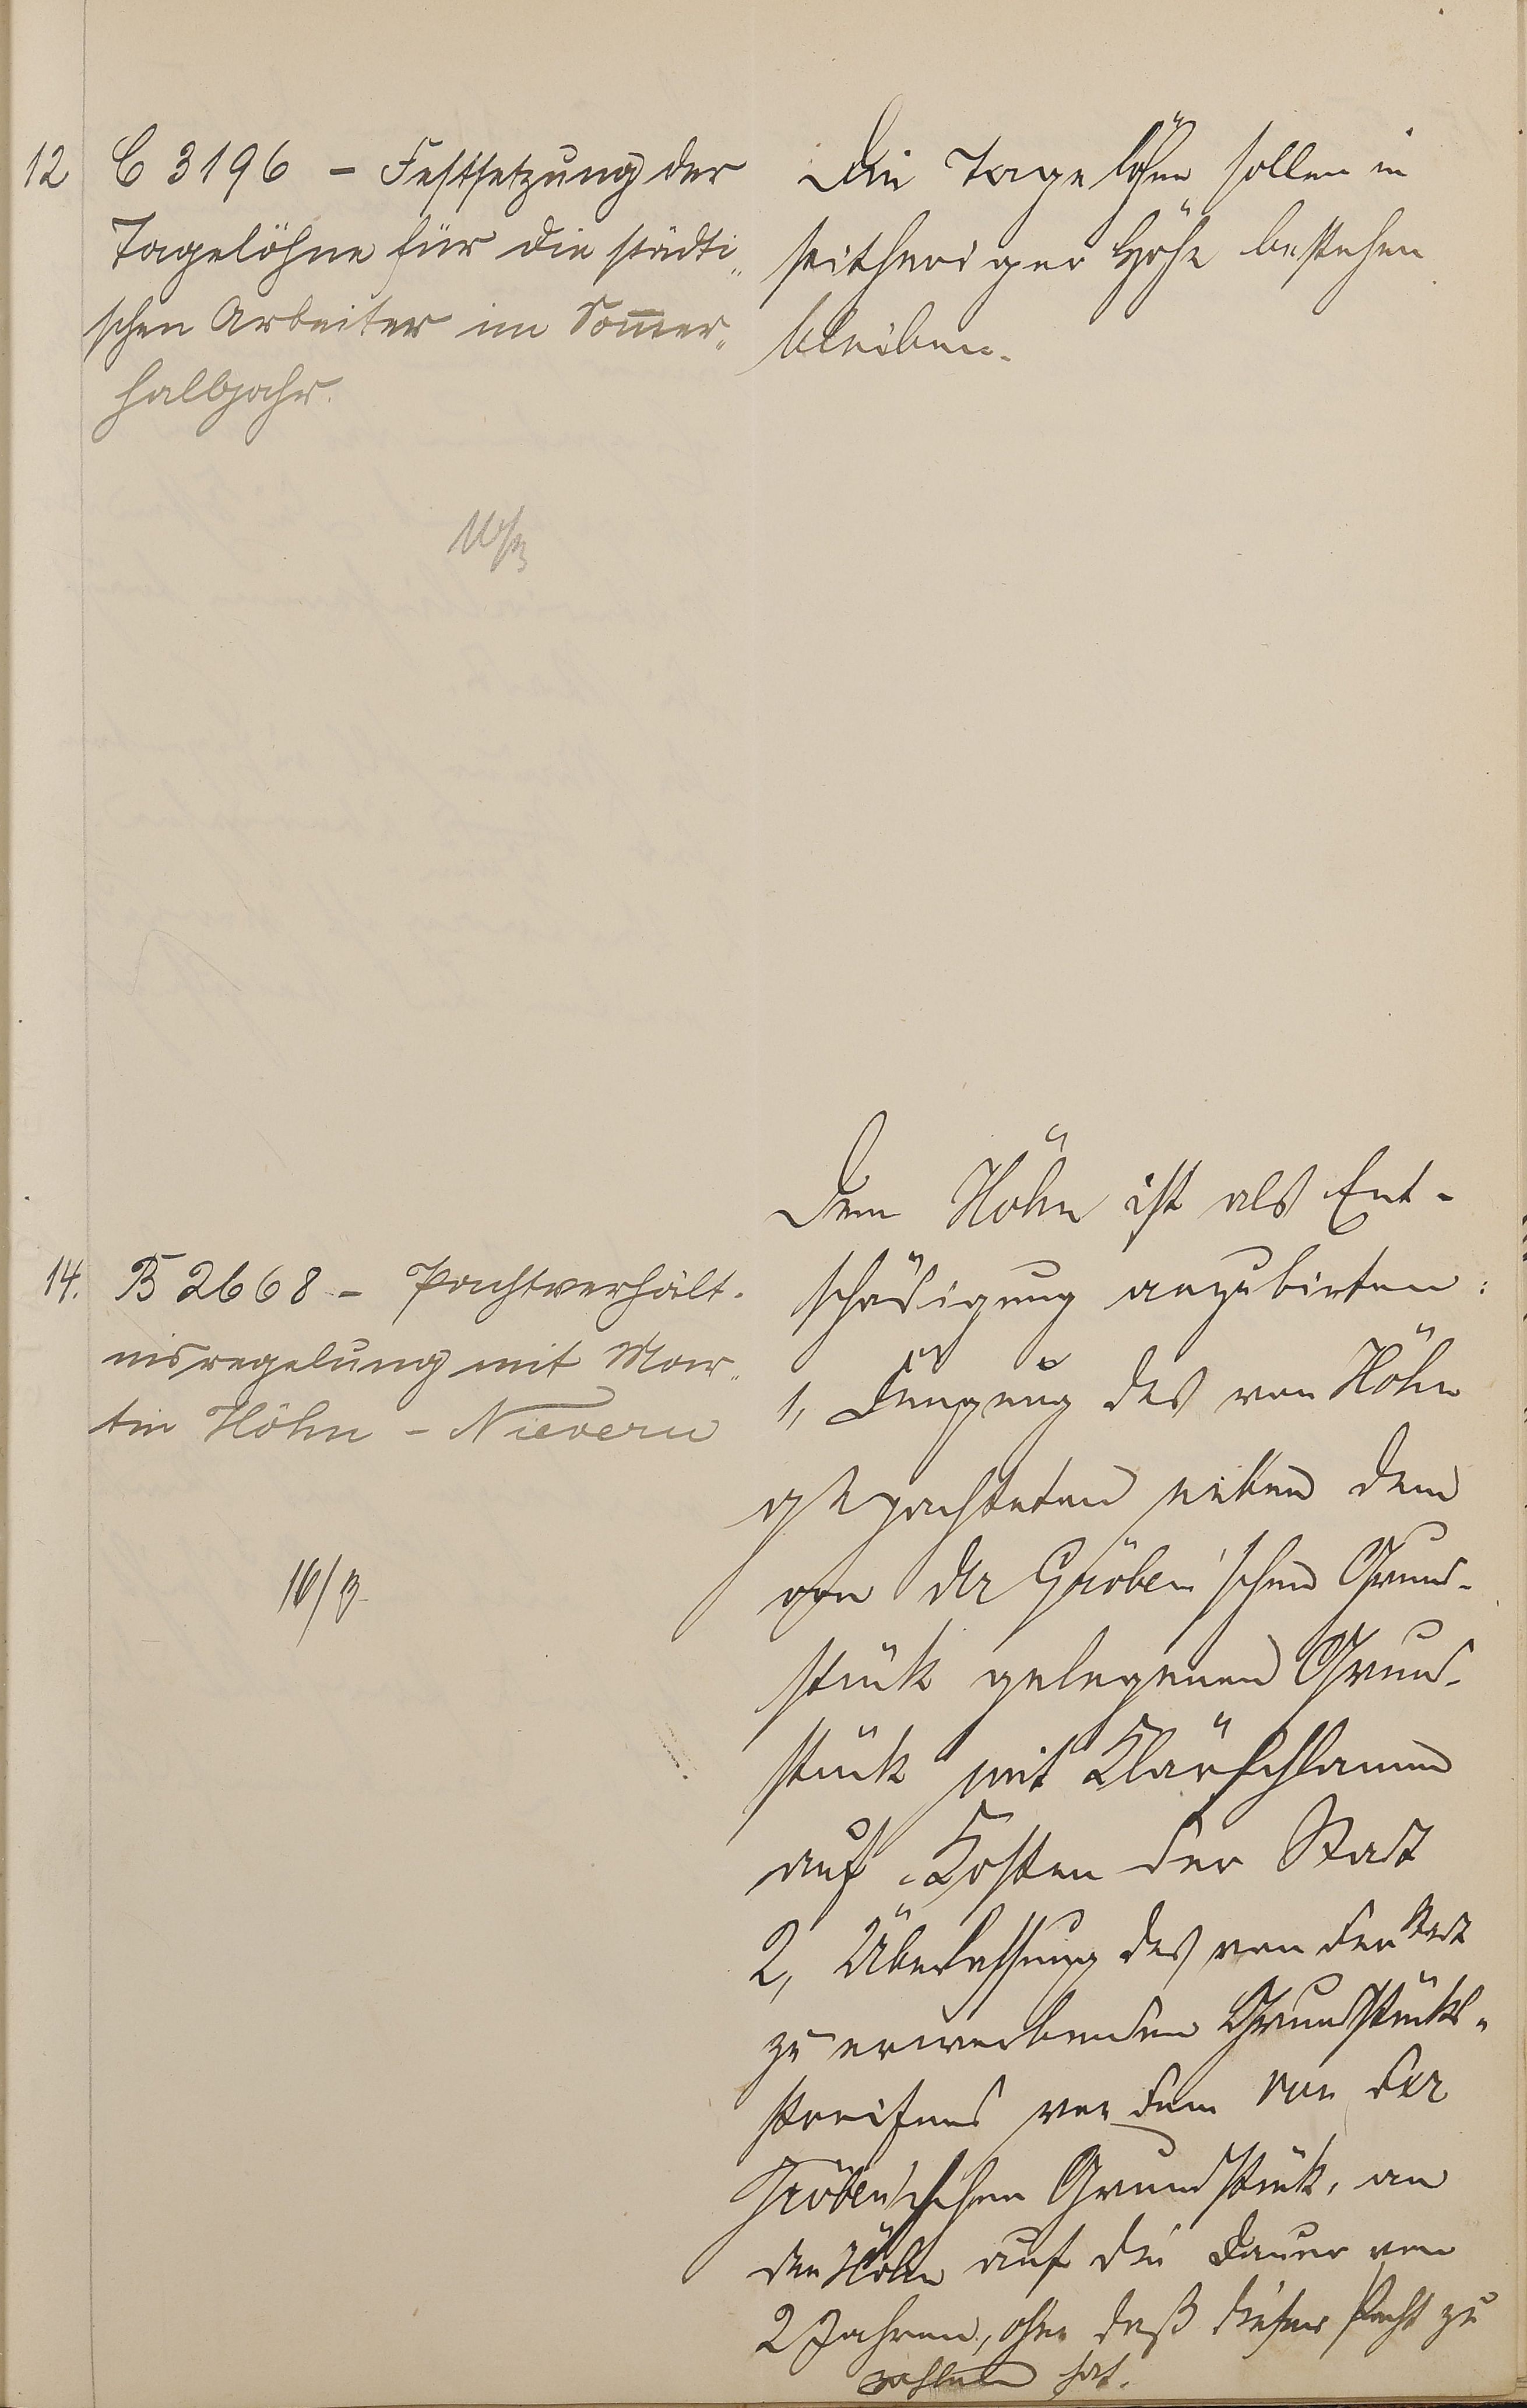 12 C 3196 - Festsetzung der
Tagelöhne für die städti„
schen Arbeiter im Som̅er„
halbjahr.
Die Tagelöhne sollen in
seitheriger Höhe bestehen
bleiben.
14. B 2668 - Pachtverhält-
nisregelung mit Mar„
tin Höhn - Nievern
16/3.
Dem Höhn ist als Ent-
schädigung anzubieten:
1, Düngung des von Höhn
gepachteten neben dem
von der Gröben'schen Grund-
stück gelegenen Grund-
stück mit Klärschlamm
auf Kosten der Stadt
2, Überlassung des von der Stadt
zu erwerbenden Grundstücks-
streifens vor dem von der
Gröben'schen Grundstück, an
den Höhn auf die Dauer von
2 Jahren, ohne daß dieser Pacht zu
zahlen hat.